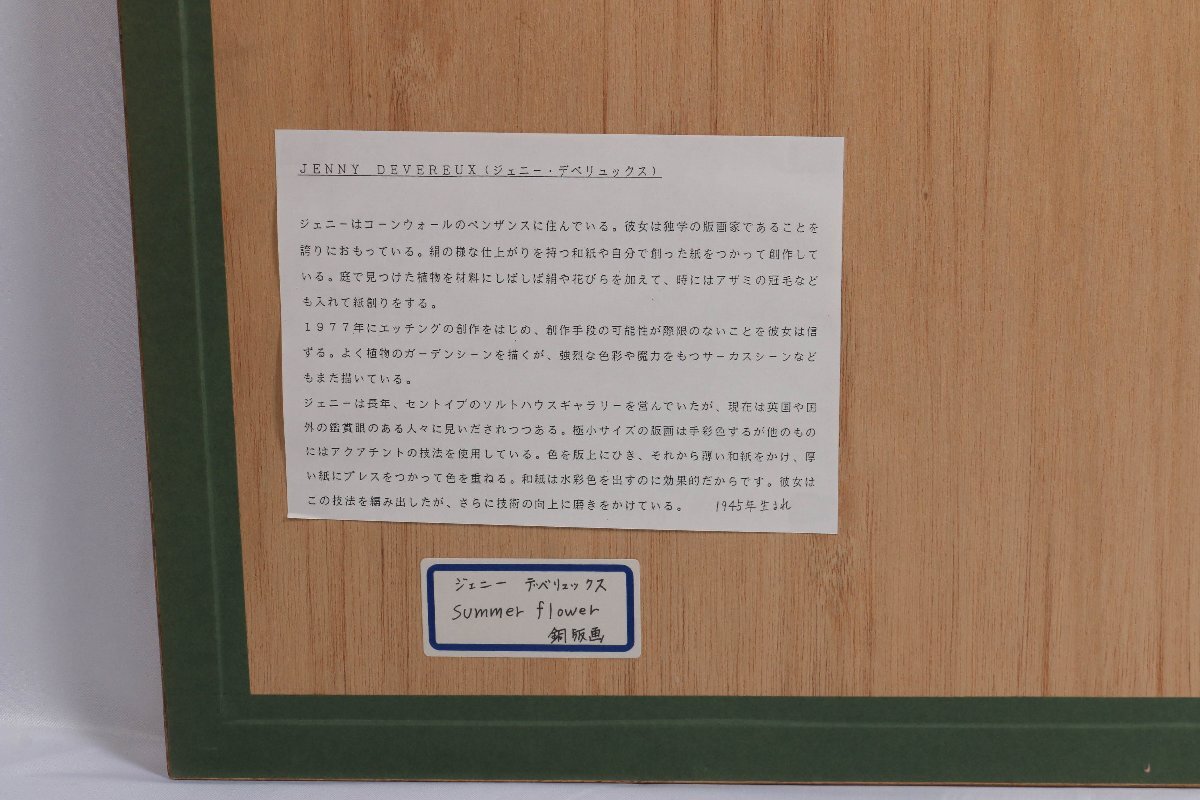 JENNY DEVEREUX(ジェニー・デベリュックス)
ジェニーはコーンウォールのペンザンスに住んでいる。彼女は独学の版画家であることを
誇りにおもっている。絹の様な仕上がりを持つ和紙や自分で創った紙をつかって創作して
いる。庭で見つけた植物を材料にしばしば絹や花びらを加えて、時にはアザミの冠毛など
も入れて紙創りをする。
1977年にエッチングの創作をはじめ、創作手段の可能性が際限のないことを彼女は信
ずる。よく植物のガーデンシーンを描くが、強烈な色彩や魔力をもつサーカスシーンなど
もまた描いている。
ジェニーは長年、セントイブのソルトハウスギャラリーを営んでいたが、現在は英国や国
外の鑑賞眼のある人々に見いだされつつある。極小サイズの版画は手彩色するが他のもの
にはアクアチントの技法を使用している。色を版上にひき、それから薄い和紙をかけ、厚
い紙にプレスをつかって色を重ねる。和紙は水彩色を出すのに効果的だからです。彼女は
この技法を編み出したが、さらに技術の向上に磨きをかけている。 1945年生まれ
ジェニー デベリュックス
summer flower
銅版画